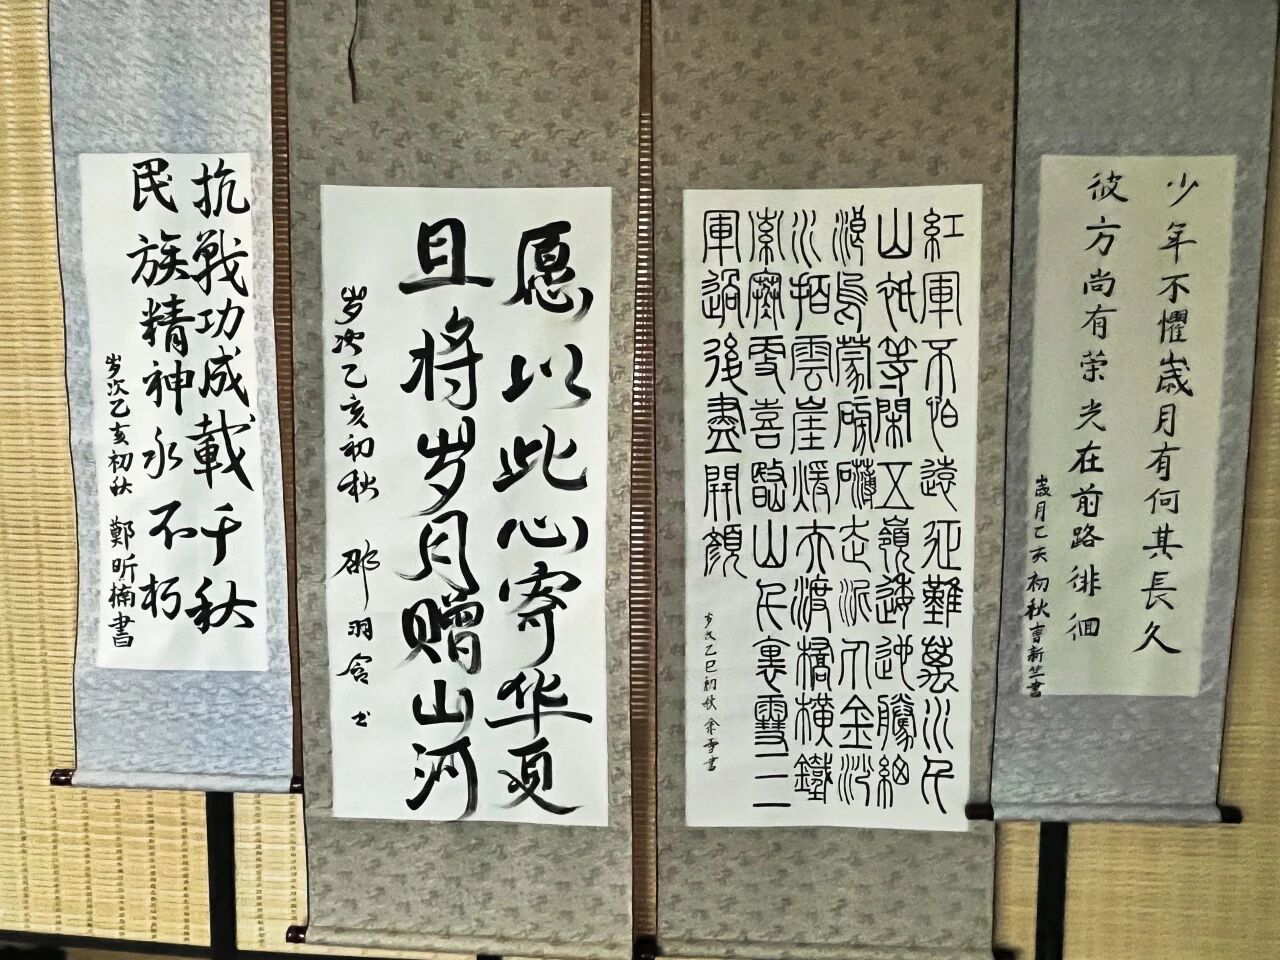 少年不懼歲月有何其長久
彼方尚有荣光在前路徘徊
歲月乙亥初秋 新竺書
紅軍不怕遠征難萬水千
山祇等閑五嶺逶迤騰細
浪烏蒙磅礴走泥丸金沙
水拍雲崖煖大渡橋橫鐵
索寒更喜岷山千裏雪三
軍過後盡開顏
岁次乙巳初秋 雪書
愿以此心寄华夏
且将岁月赠山河
岁次乙亥初秋 邵羽含 书
抗戰功成載千秋
民族精神永不朽
岁次乙亥初秋 鄭昕楠書